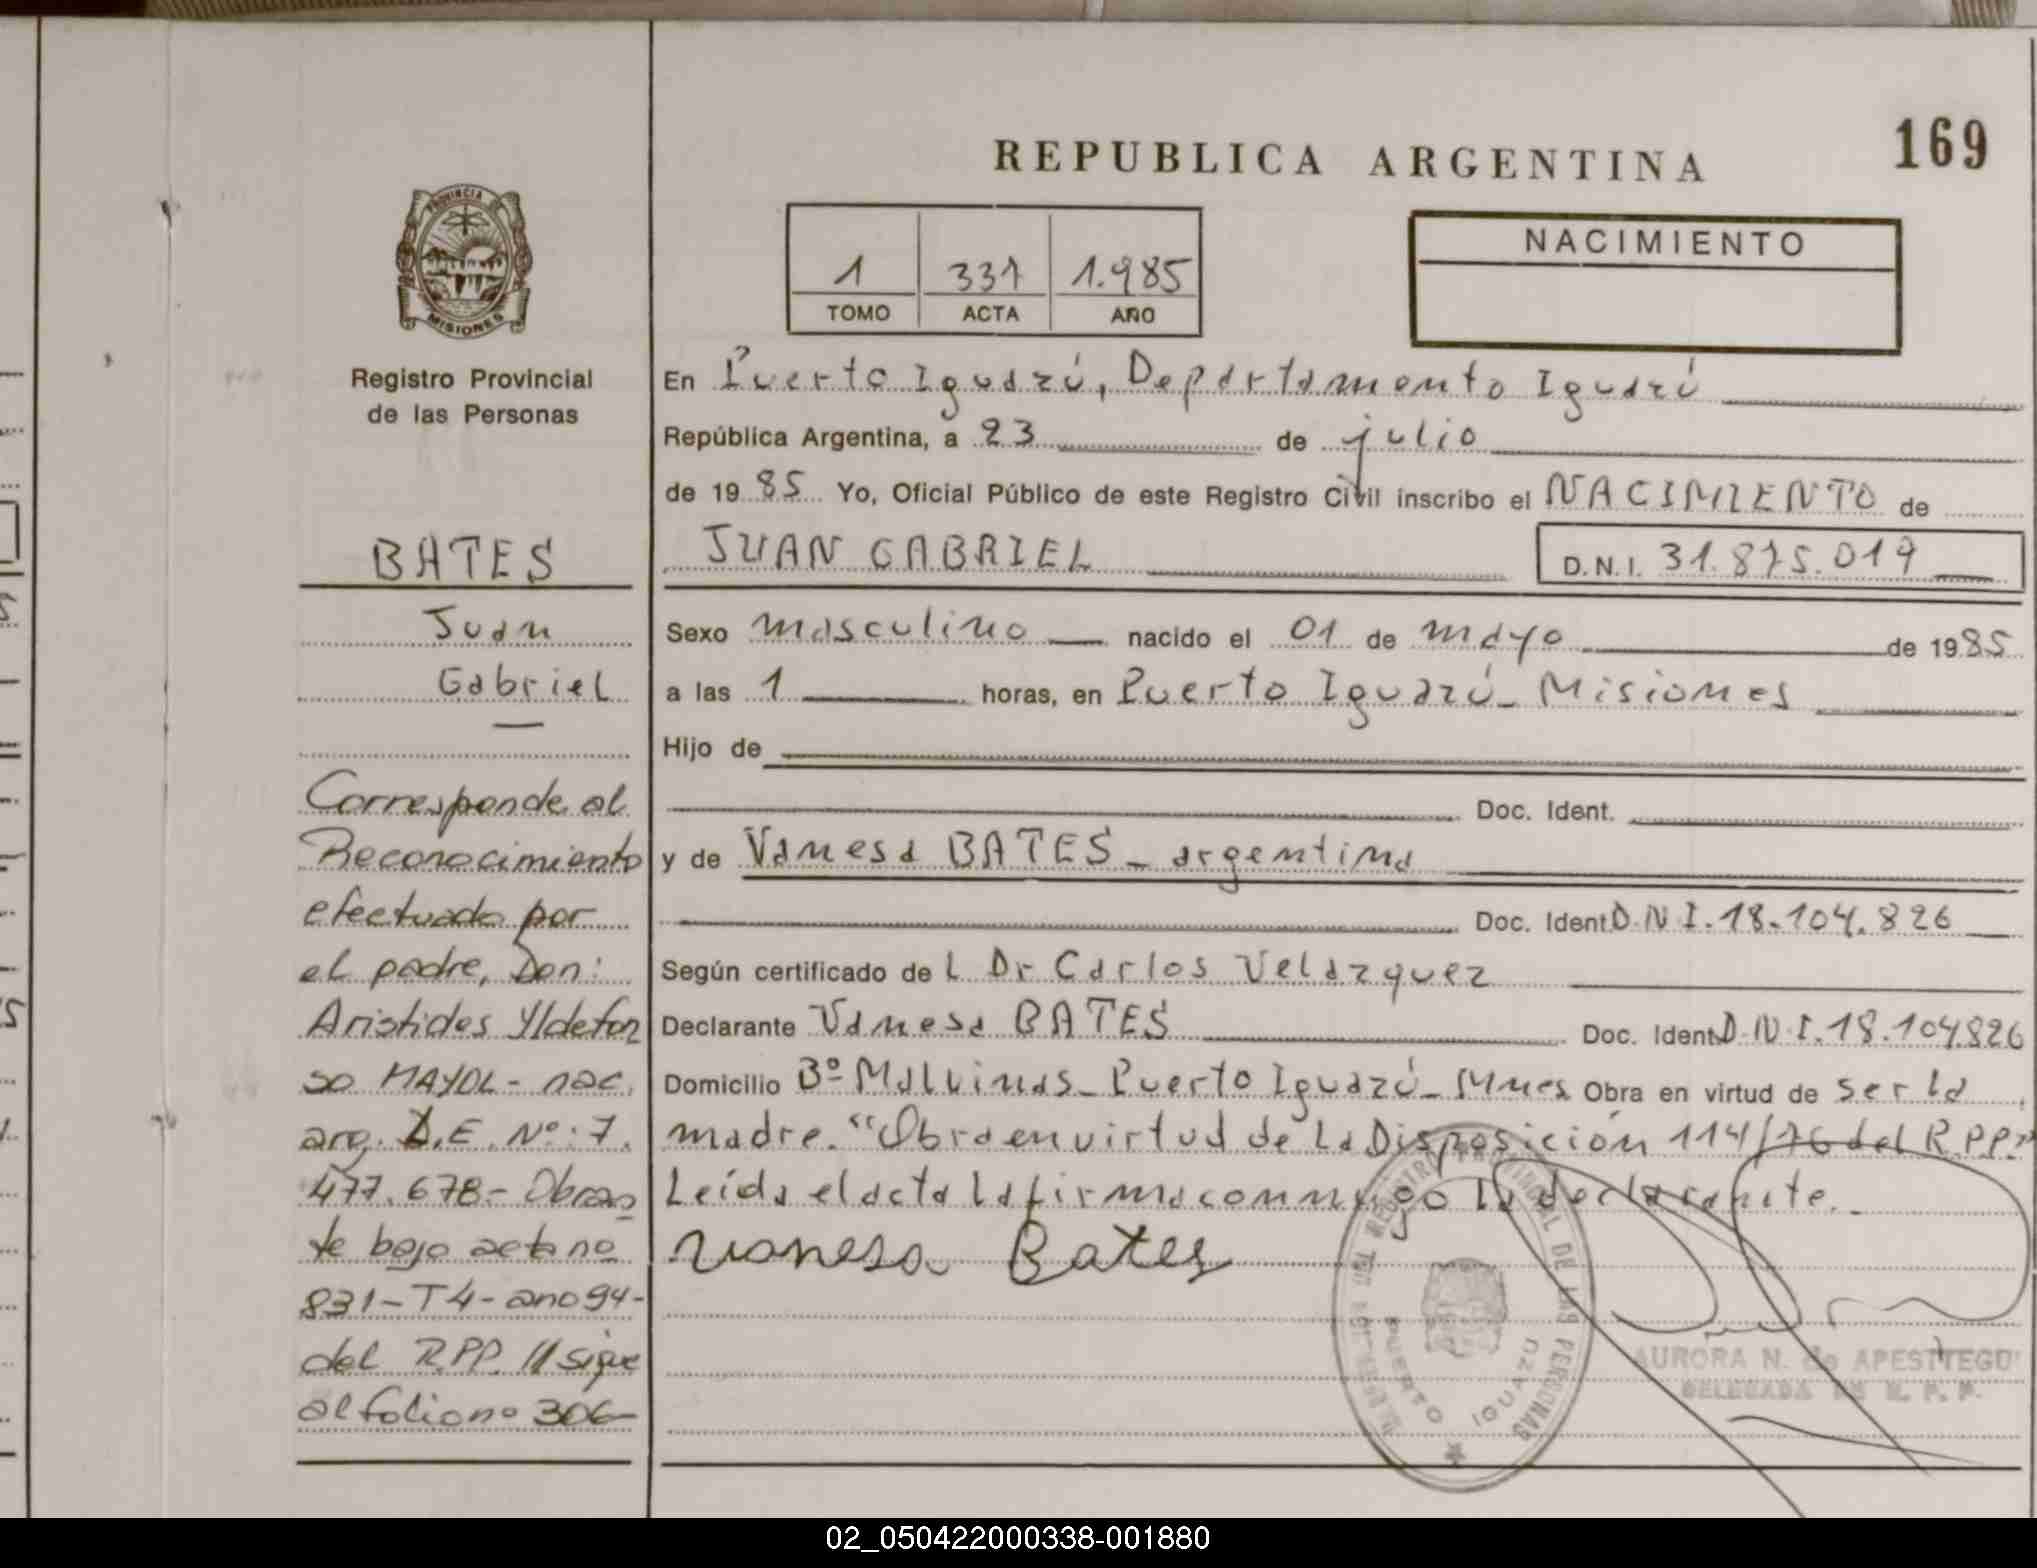 REPUBLICA ARGENTINA
169
PROVINCIA DE
MISIONES
Registro Provincial
de las Personas
1 331 1.985
TOMO ACTA AÑO
NACIMIENTO
En Puerto Iguazú, Departamento Iguazú
República Argentina, a 23 de julio
de 19 85 Yo, Oficial Público de este Registro Civil inscribo el NACIMIENTO de
JUAN GABRIEL D.N.I. 31.875.019
Sexo masculino nacido el 01 de mayo de 1985
a las 1 horas, en Puerto Iguazú - Misiones
Hijo de
Doc. Ident.
y de Vanesa BATES - argentina
Doc. Ident D.N.I. 18.104.826
Según certificado de L Dr Carlos Velazquez
Declarante Vanesa BATES Doc. Ident D.N.I. 18.104.826
Domicilio Bº Malvinas - Puerto Iguazú - Mnes Obra en virtud de ser la
madre. "Obra en virtud de la Disposición 114/76 del R.P.P."
Leída el acta la firma conmigo la declarante.
Vanesa Bates
BATES
Juan
Gabriel
Corresponde al
Reconocimiento
efectuado por
el padre, Don:
Aristides Yldefon
so MAYOL - nac.
arg. D.E. Nº: 7.
477.678 - Obran
te bajo acta nº
831 - T4 - año 94 -
del R.P.P. // sigue
al folio nº 306 -
REGISTRO PROVINCIAL DE LAS PERSONAS
PUERTO IGUAZU
AURORA N. de APESTEGUI
DELEGADA DE R. P. P.
02_050422000338-001880